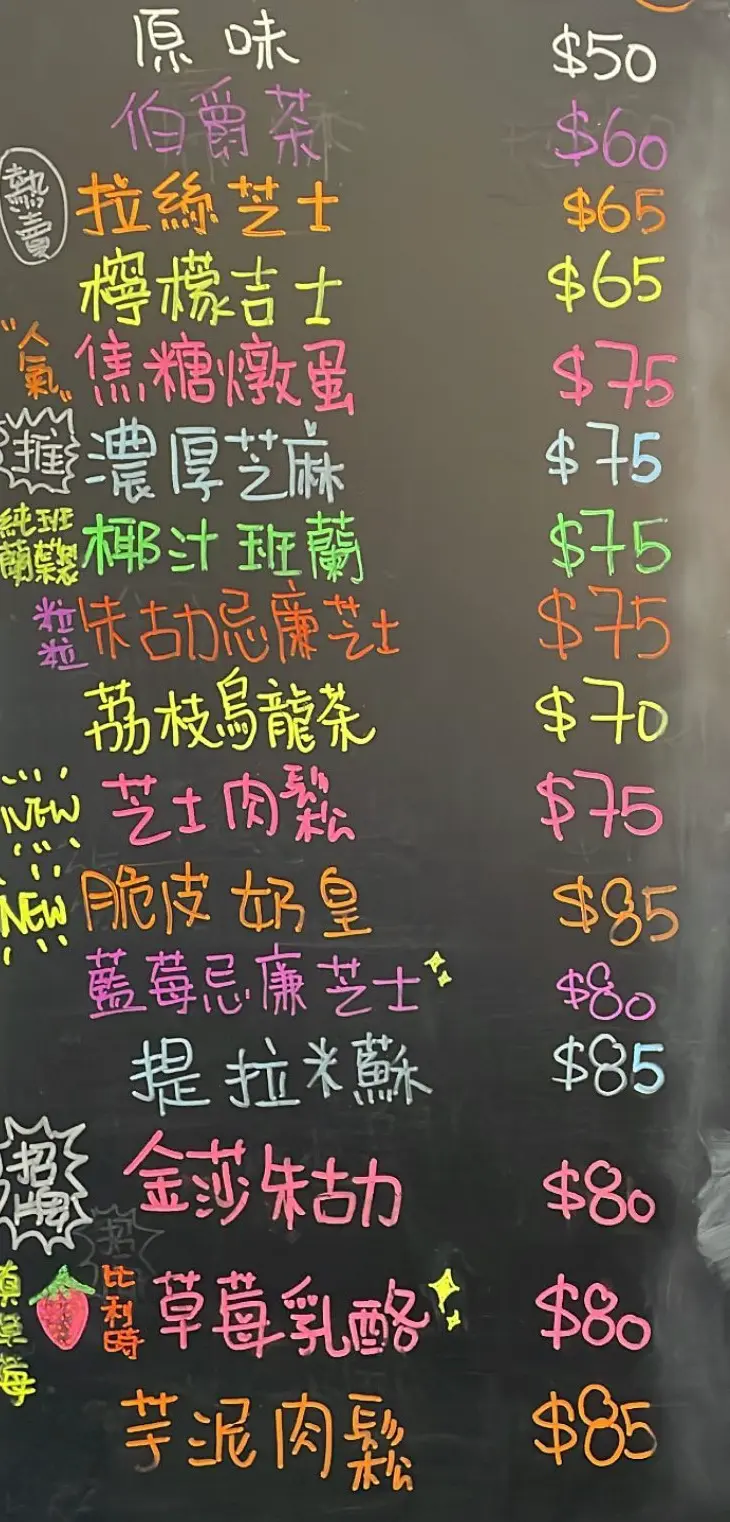 原味 $50
伯爵茶 $60
熱賣 拉絲芝士 $65
檸檬吉士 $65
"人氣" 焦糖燉蛋 $75
推 濃厚芝麻 $75
純班蘭葉製 椰汁班蘭 $75
粒粒 朱古力忌廉芝士 $75
荔枝烏龍茶 $70
NEW 芝士肉鬆 $75
NEW 脆皮奶皇 $85
藍莓忌廉芝士 $80
提拉米蘇 $85
招牌 金莎朱古力 $80
真草莓 比利時 草莓乳酪 $80
芋泥肉鬆 $85